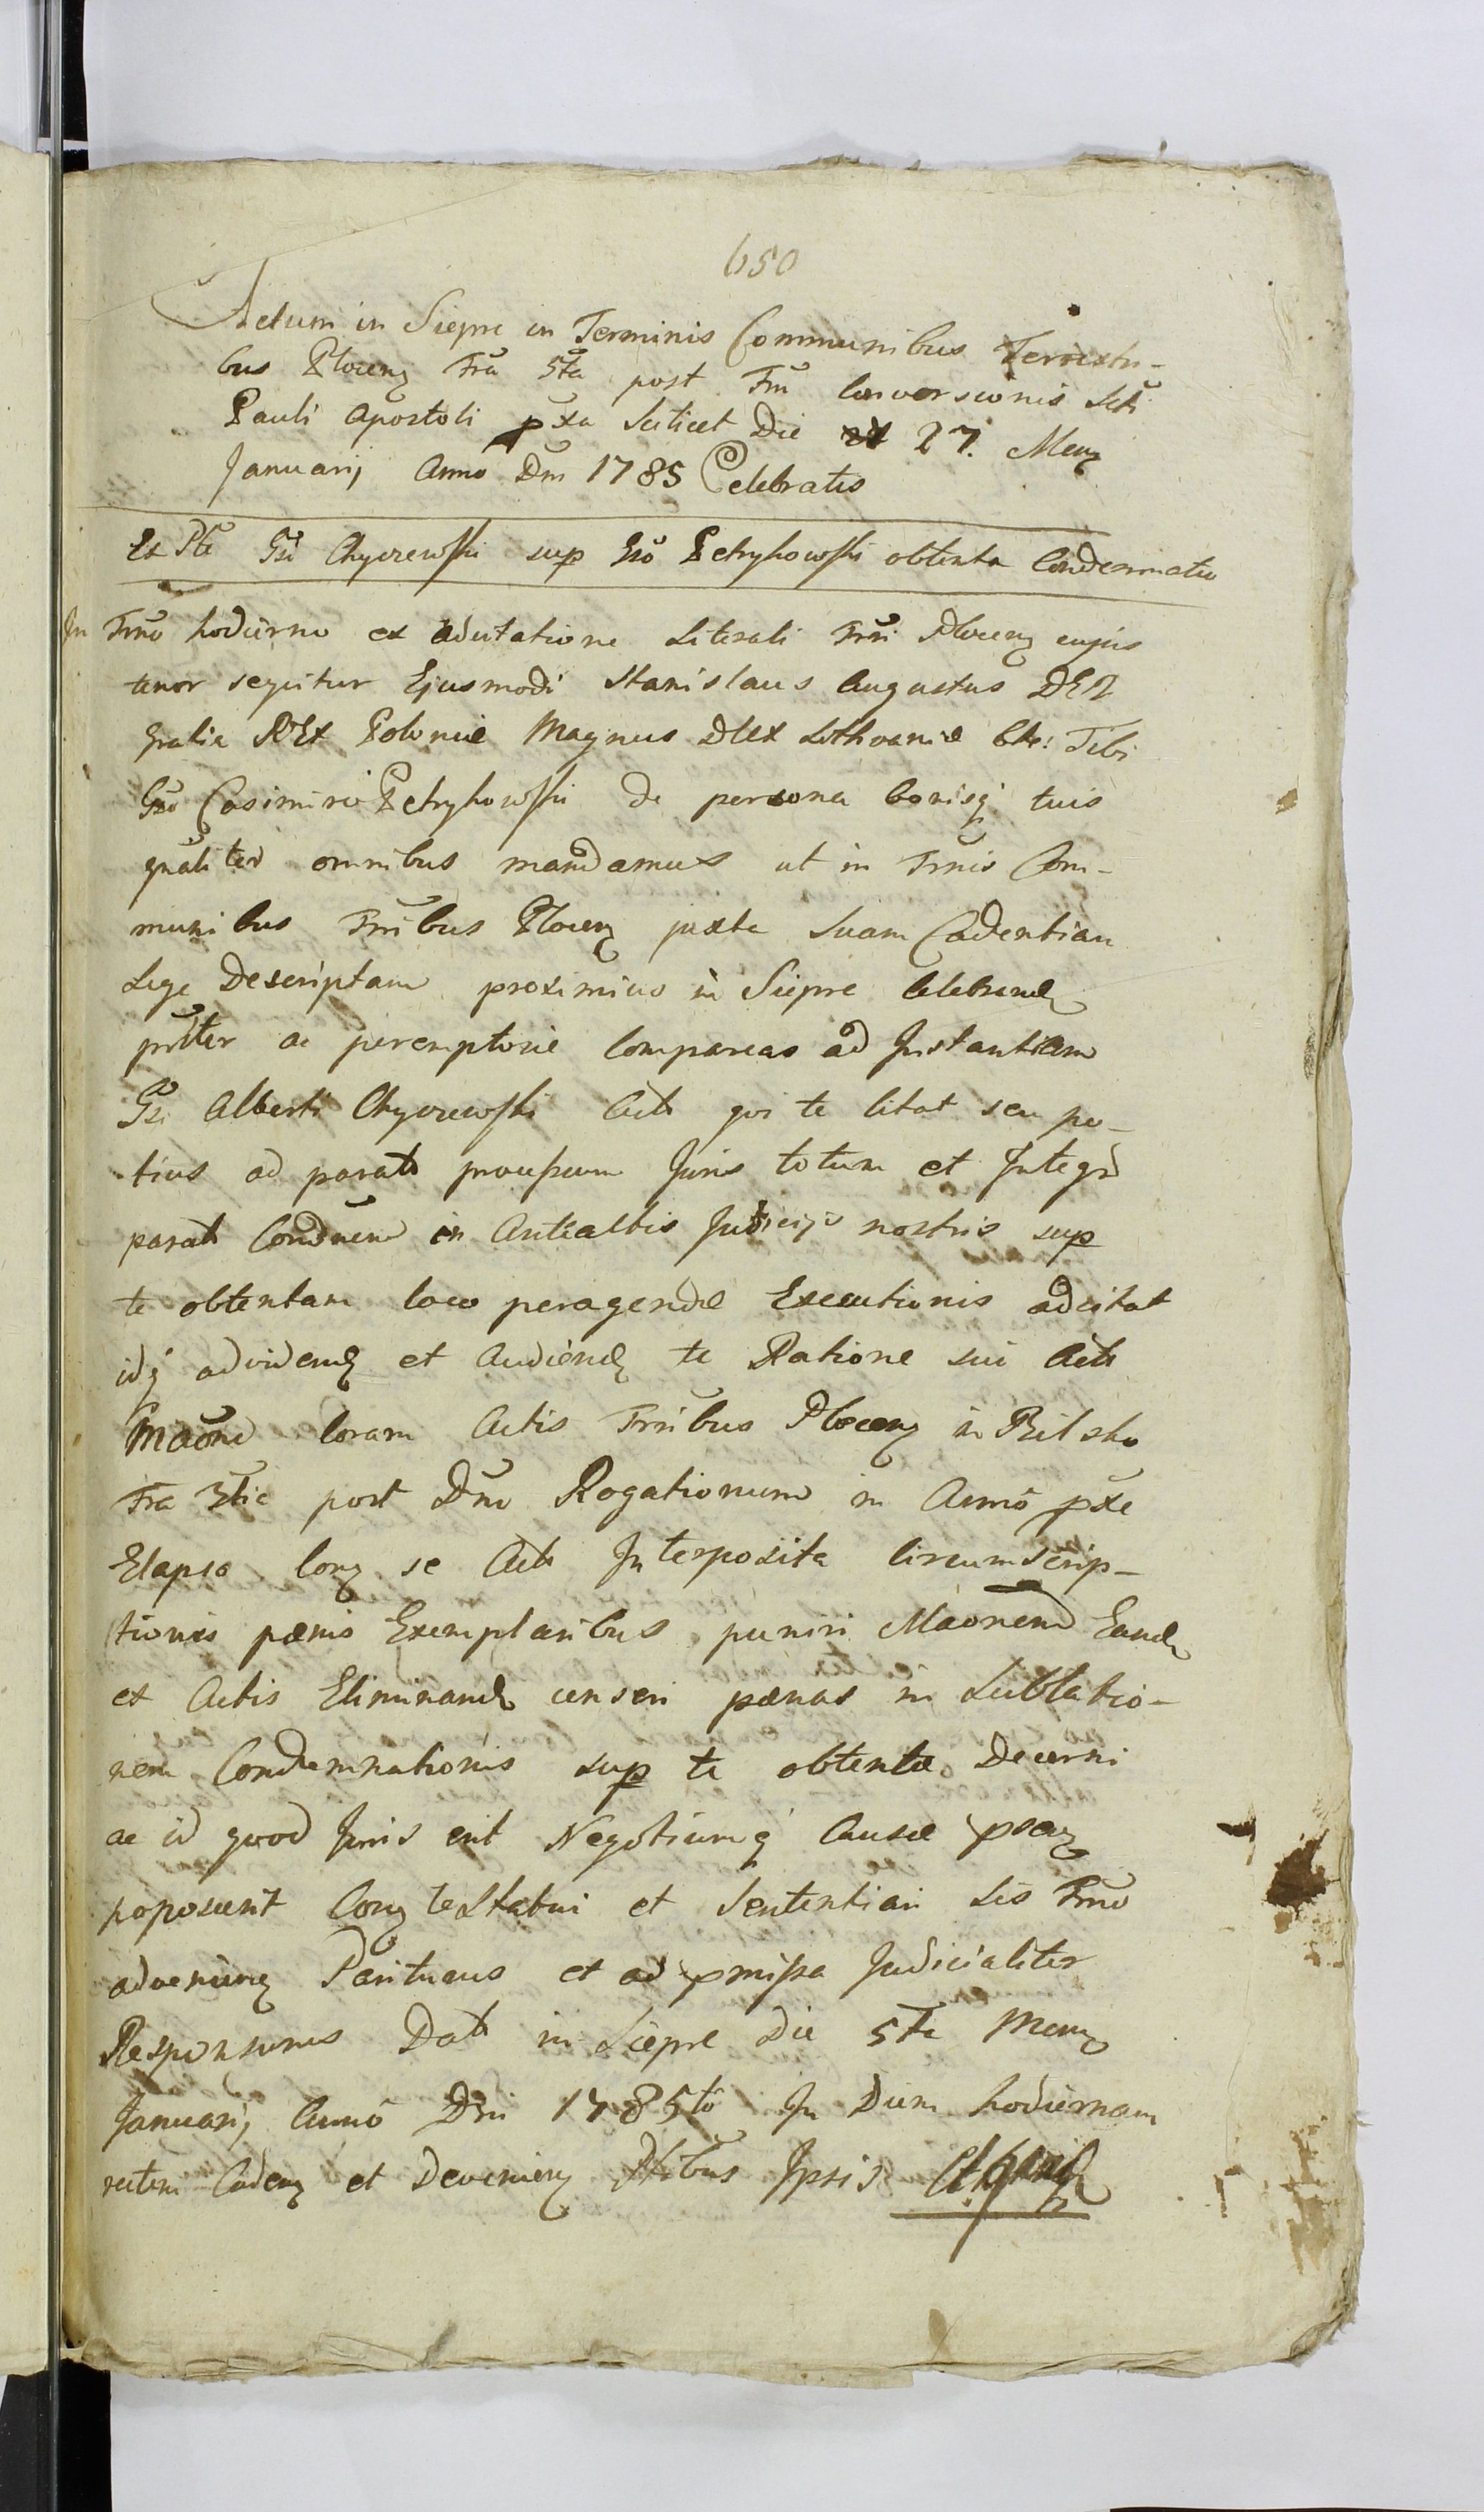 650
Actum in Siepre in Terminis Communibus Terrestri-
bus Plocen Fra 5ta post Fm Conversionis Scti
Pauli Apostoli pxa Scilicet Die 27. Men
Januarij Anno Dni 1785 Celebratis
Ex Pte Gsi Chyczewski sup Gso Petrykowski obtenta Condemnatio
In Trno hodierno ex adcitatione Literali Trri Plocen cujus
tenor sequitur Ejusmodi Stanislaus Augustus DEI
gratia REX Poloniæ Magnus DUX Lithvaniæ Etc: Tibi
Gso Casimiro Petrykowski de persona bonisq tuis
gnaliter omnibus mandamus ut in Trnis Com-
munibus Trribus Plocen juxta Suam Cadentiam
Lege Descriptam proximius in Siepre Celebrand
prltter ac peremptorie Compareas ad Instantiam
Gsi Alberti Chyczewski Act qui te Citat seu po-
tius ad parat Juris totum et Integr
parat Condnem in Anteactis Judicijs nostris sup
te obtentam loco peragendæ Executionis adcitat
idq advidend et Audiend te Ratione sui Act
Maone Coram Actis Trribus Plocen in Bielsko
Fra 3tia post Dnm Rogationum in Anno pxe
Elapso Con se Act Interposita Circumscrip-
tionis pænis Exemplaribus puniri Maonem Eand
ex Actis Eliminand censeri pænas in Sublatio-
nem Condemnationis sup te obtentæ Decerni
ac id quod Juris erit Negotiumq Causæ psen
poposcerit Con te Statui et Sententiari Sis Trno
advenien Pariturus et ad pmissa Judicialiter
Responsurus Dat in Siepre Die 5ta Men
Januarij Anno Dni 1785to In Diem hodiernam
rectem Caden et Devenien Ptibus Ipsis